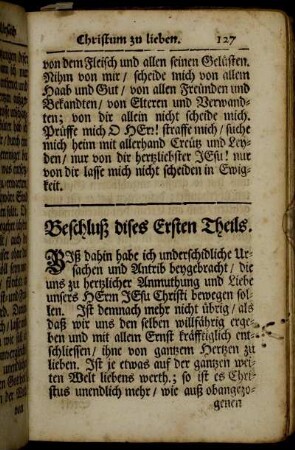 Christum zu lieben. 127
von dem Fleisch und allen seinen Gelüsten.
Nihm von mir / scheide mich von allem
Haab und Gut / von allen Freünden und
Bekandten / von Elteren und Verwand-
ten; von dir allein nicht scheide mich.
Prüffe mich O HErr! straffe mich / suche
mich heim mit allerhand Creütz und Ley-
den / nur von dir hertzliebster JEsu! nur
von dir lasse mich nicht scheiden in Ewig-
keit.
Beschluß dises Ersten Theils.
BIß dahin habe ich underschidliche Ur-
sachen und Antrib beygebracht / die
uns zu hertzlicher Anmuthung und Liebe
unsers HErrn JEsu Christi bewegen sol-
len. Ist demnach mehr nicht übrig / als
daß wir uns den selben willfährig erge-
ben und mit allem Ernst kräfftiglich ent-
schliessen / ihne von gantzem Hertzen zu
lieben. Ist je etwas auf der gantzen wei-
ten Welt liebens werth.; so ist es Chri-
stus unendlich mehr / wie auß obangezo-
genen